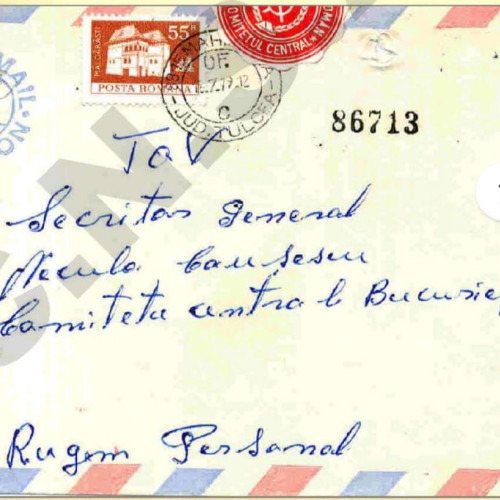 MĂLDĂRĂȘTI
55 B
POSTA ROMANA
COMITETUL CENTRAL
MAHM
OF.
7.79.12
C
JUD. TULCEA
MAIL·NO
86713
C.N.
Tov
Secritar general
Necula Causescu
Camitetu centra l Bucurie
Rugem Personal